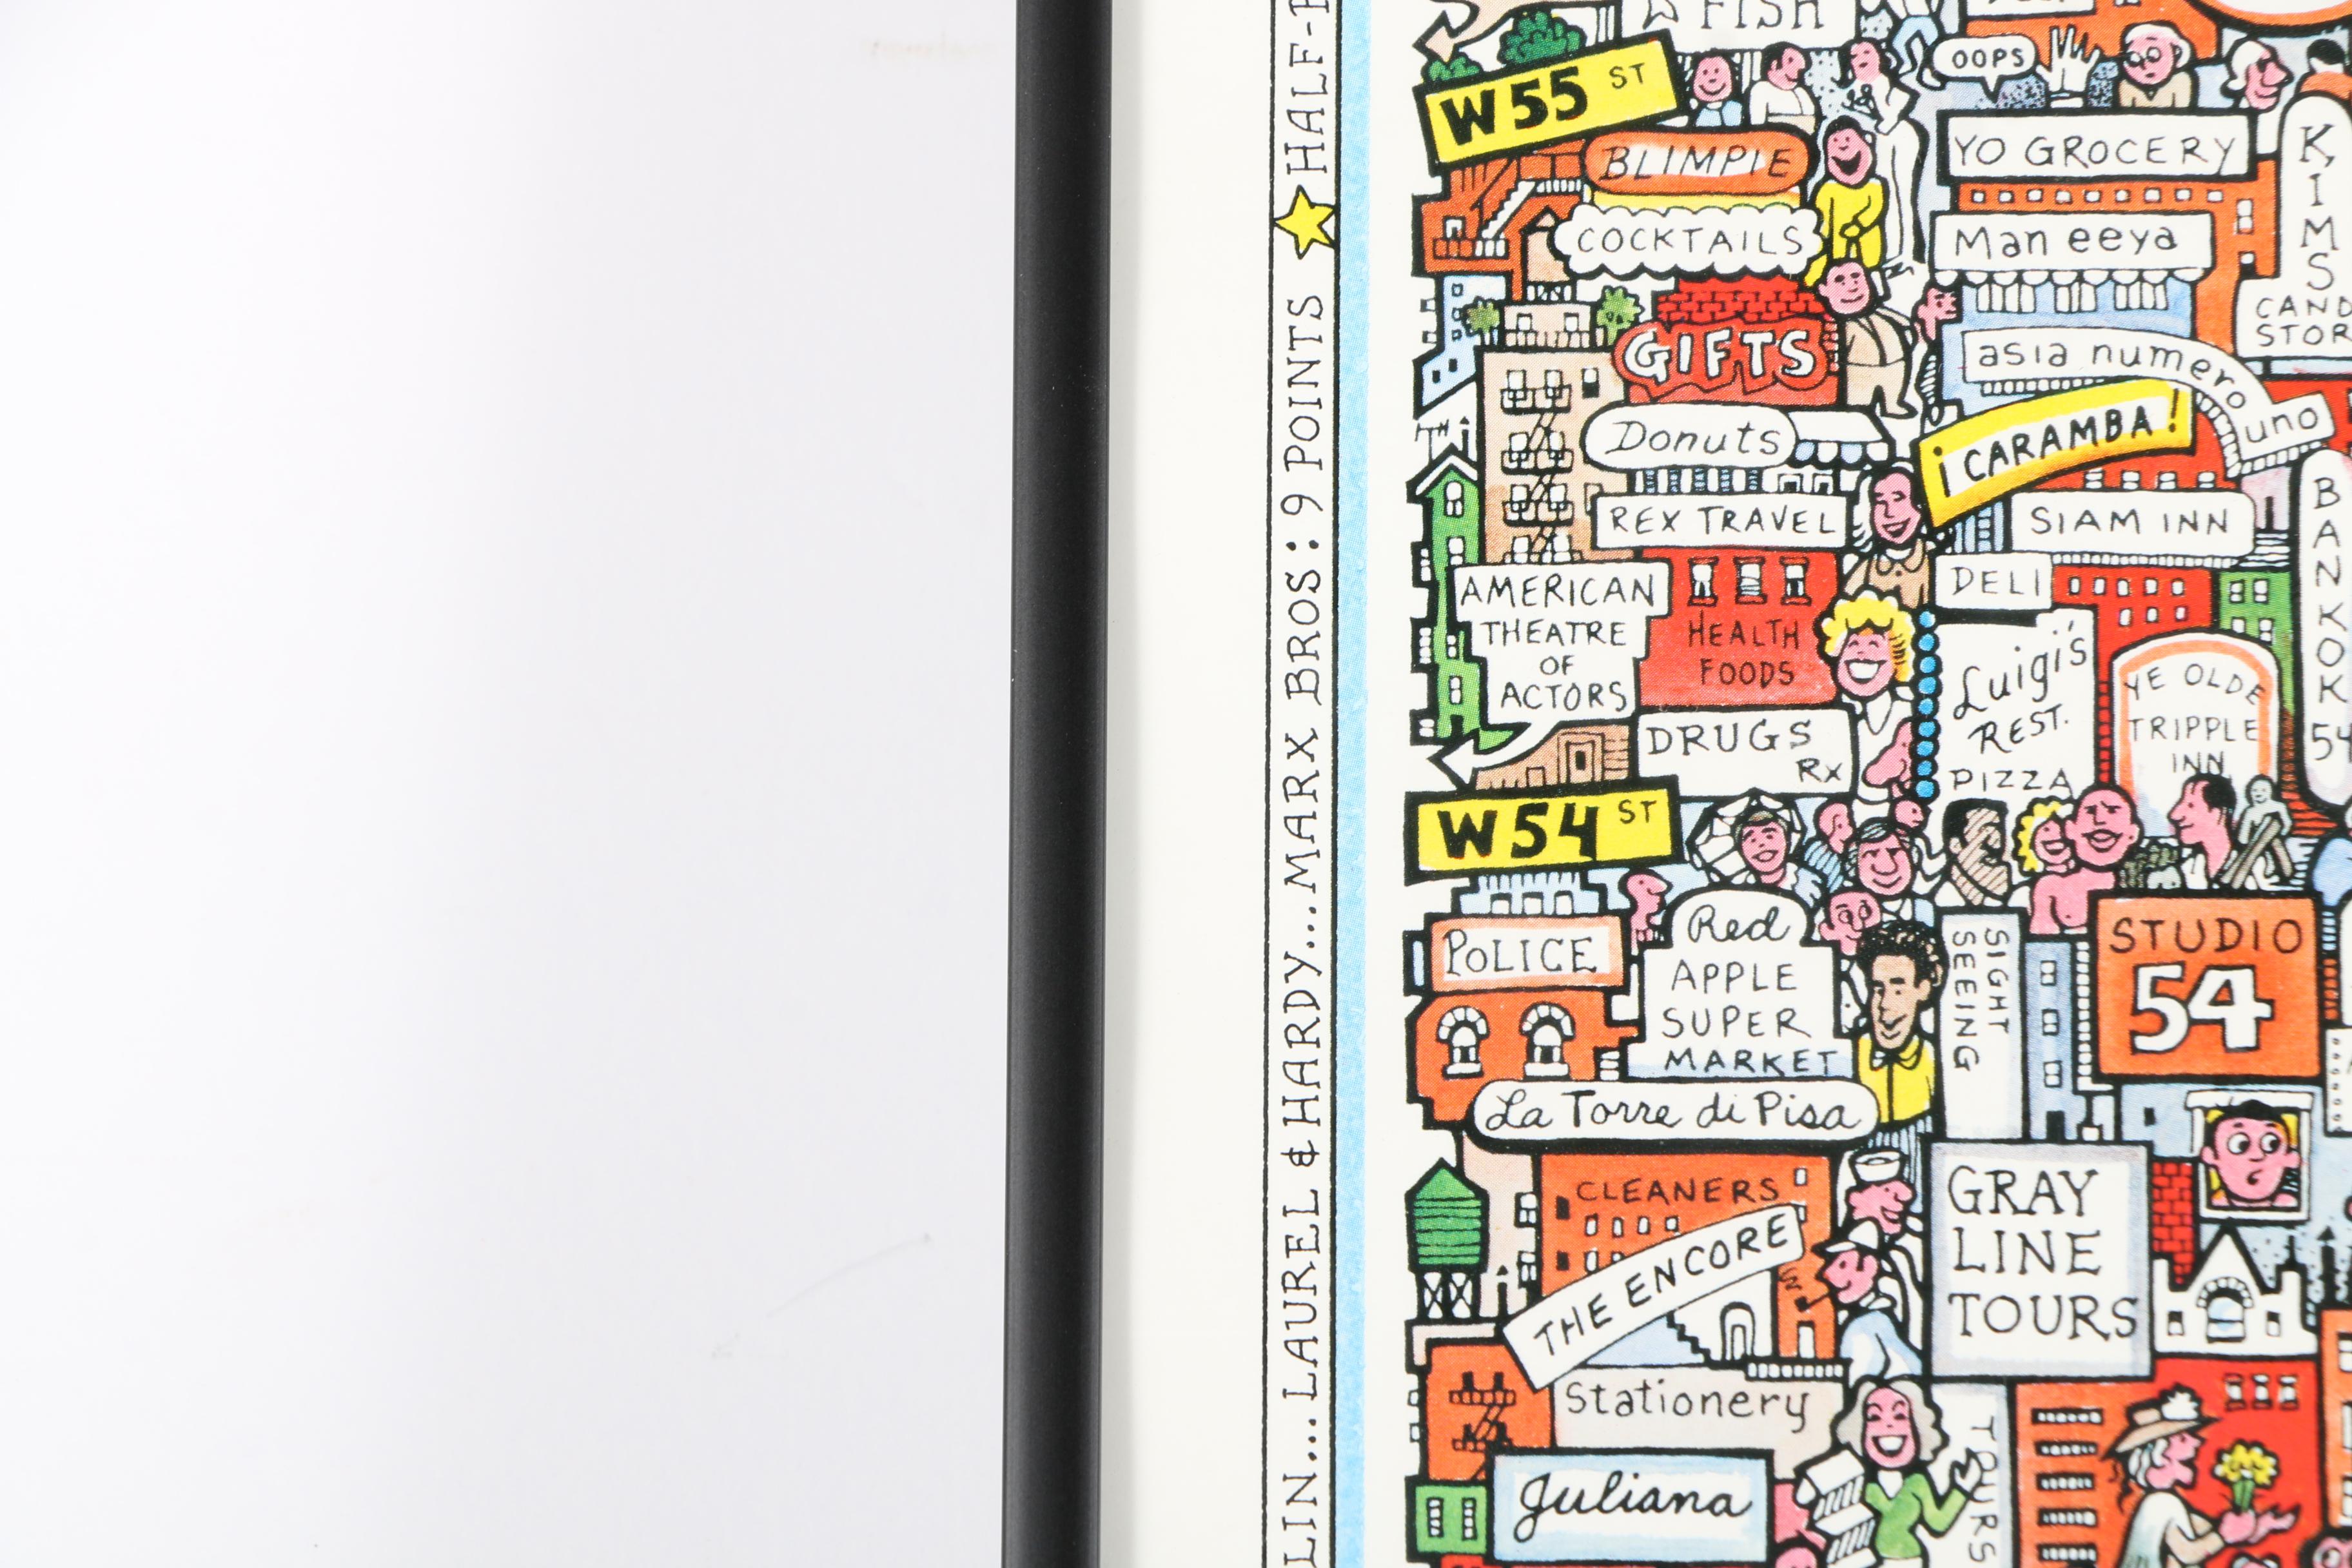 LIN...LAUREL & HARDY...MARX BROS: 9 POINTS ★ HALF-
FISH
OOPS
W 55 ST
BLIMPIE
YO GROCERY
COCKTAILS
Man eeya
KIMS
CAND
STOR
GIFTS
asia numero uno
Donuts
¡CARAMBA!
REX TRAVEL
SIAM INN
BANKOK
54
AMERICAN
THEATRE
OF
ACTORS
HEALTH
FOODS
DELI
Luigi's
REST.
PIZZA
YE OLDE
TRIPPLE
INN
DRUGS
Rx
W 54 ST
POLICE
Red
APPLE
SUPER
MARKET
SIGHT
SEEING
STUDIO
54
La Torre di Pisa
CLEANERS
THE ENCORE
GRAY
LINE
TOURS
Stationery
TOURS
Juliana